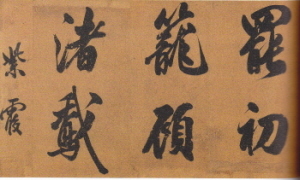 罷初
籠顧
渚載
紫霞